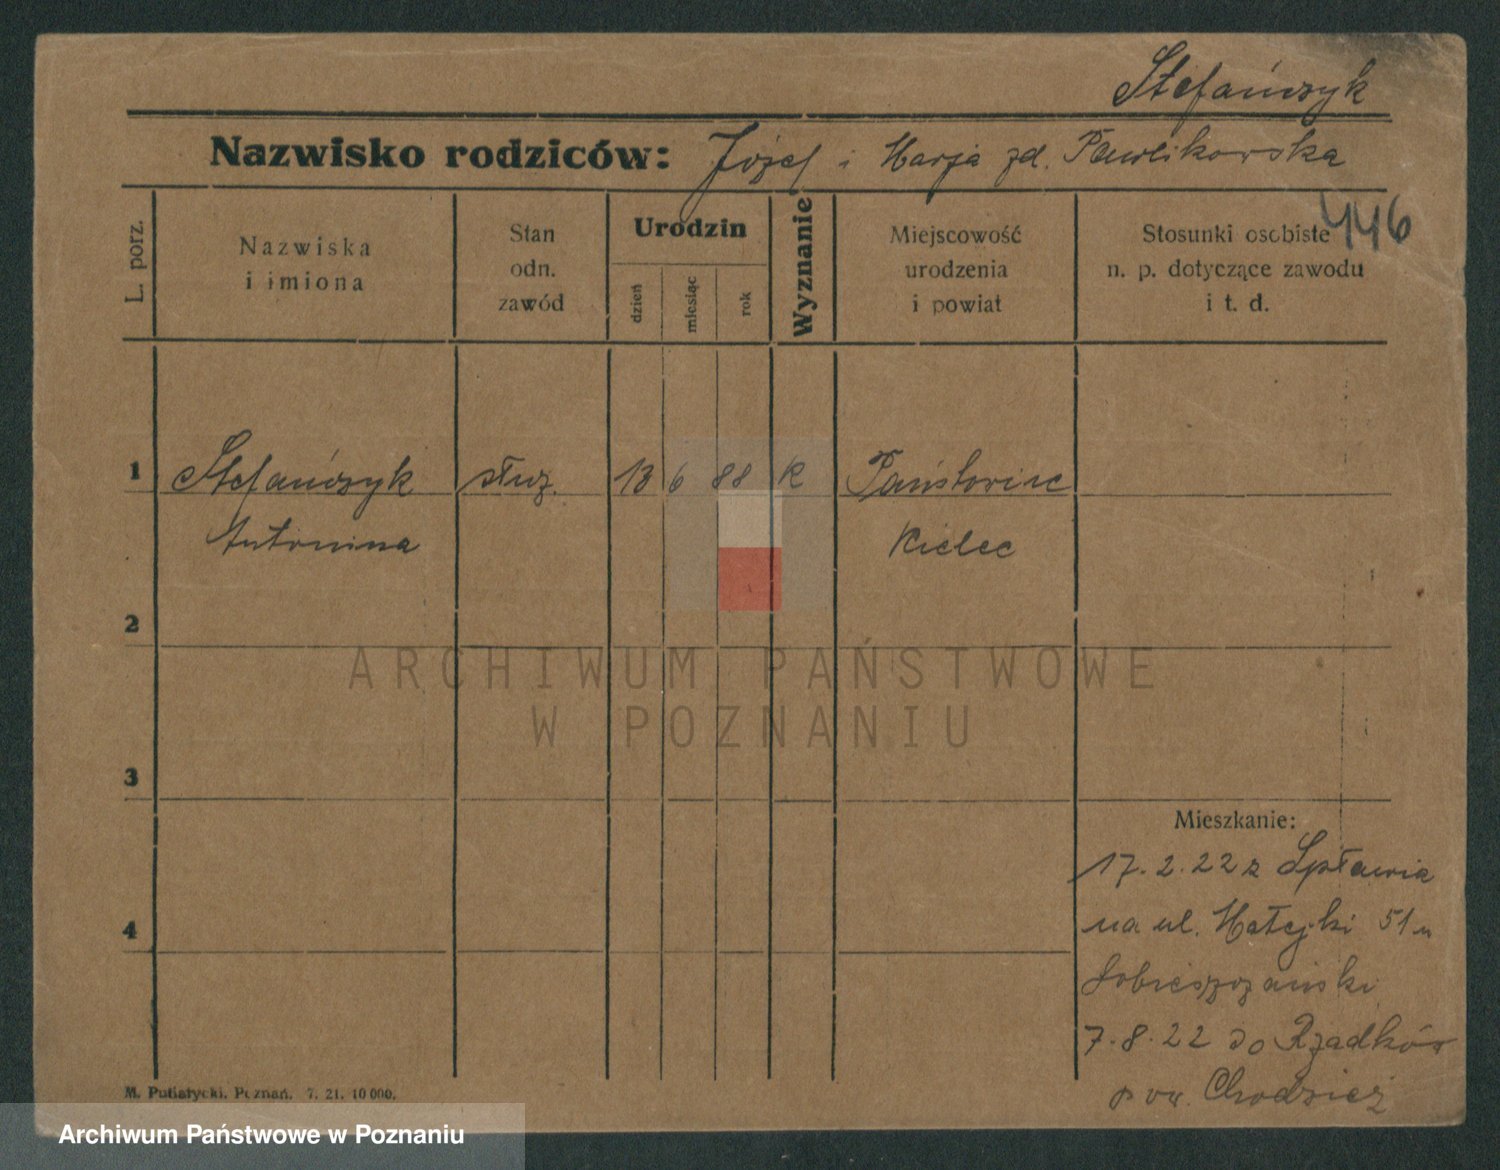 Stefańczyk
Nazwisko rodziców: Józef i Marja zd. Pawlikowska
446
L. porz.
Nazwiska
i imiona
Stan
odn.
zawód
Urodzin
dzień
miesiąc
rok
Wyznanie
Miejscowość
urodzenia
i powiat
Stosunki osobiste
n. p. dotyczące zawodu
i t. d.
1 Stefańczyk służ. 13 6 88 K
Antonina Kielec
2
3
4
ARCHIWUM PAŃSTWOWE
W POZNANIU
Mieszkanie:
17.2.22 z Spławia
na ul. Matejki 51 u
Sobieszczański
7.8.22 do Rządków
pow. Chodzież
M. Putiatycki, Poznań. 7. 21. 10 000.
Archiwum Państwowe w Poznaniu